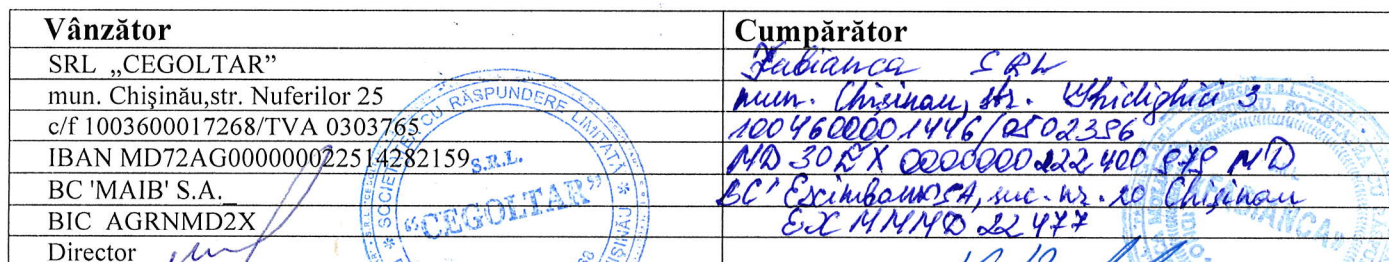 Vânzător
Cumpărător
SRL „CEGOLTAR”
Fabianca SRL
mun. Chişinău,str. Nuferilor 25
mun. Chişinau, str. Ghidighici 3
c/f 1003600017268/TVA 0303765
1004600001446/0502356
IBAN MD72AG000000022514282159
MD 30 EX 0000000222400 979 MD
BC 'MAIB' S.A._
BC' Eximbank SA, suc. nr. 20 Chişinau
BIC AGRNMD2X
EX MMMD 22477
Director
SOCIETATEA CU RĂSPUNDERE LIMITATĂ
S.R.L.
“CEGOLTAR”